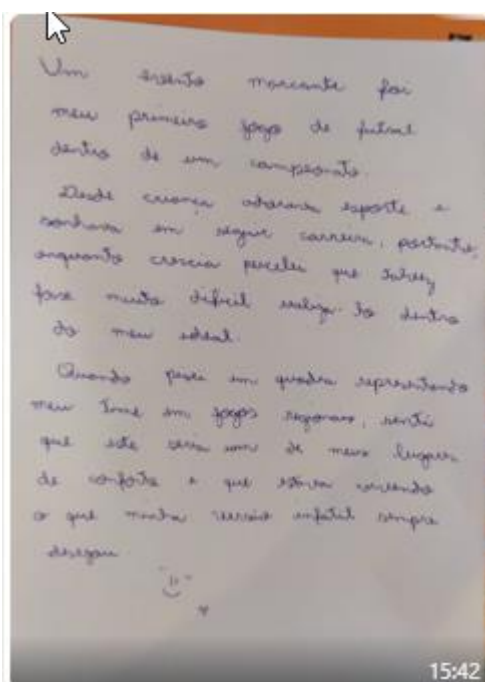 Um evento marcante foi
meu primeiro jogo de futsal
dentro de um campeonato.
Desde criança adorava esporte e
sonhava em seguir carreira, portanto,
enquanto crescia percebi que talvez
fosse muito difícil realiza-lo dentro
do meu ideal.
Quando pisei em quadra representando
meu time em jogos regionais, senti
que este seria um de meus lugares
de conforto e que estava vivendo
o que minha versão infatil sempre
desejou.
15:42